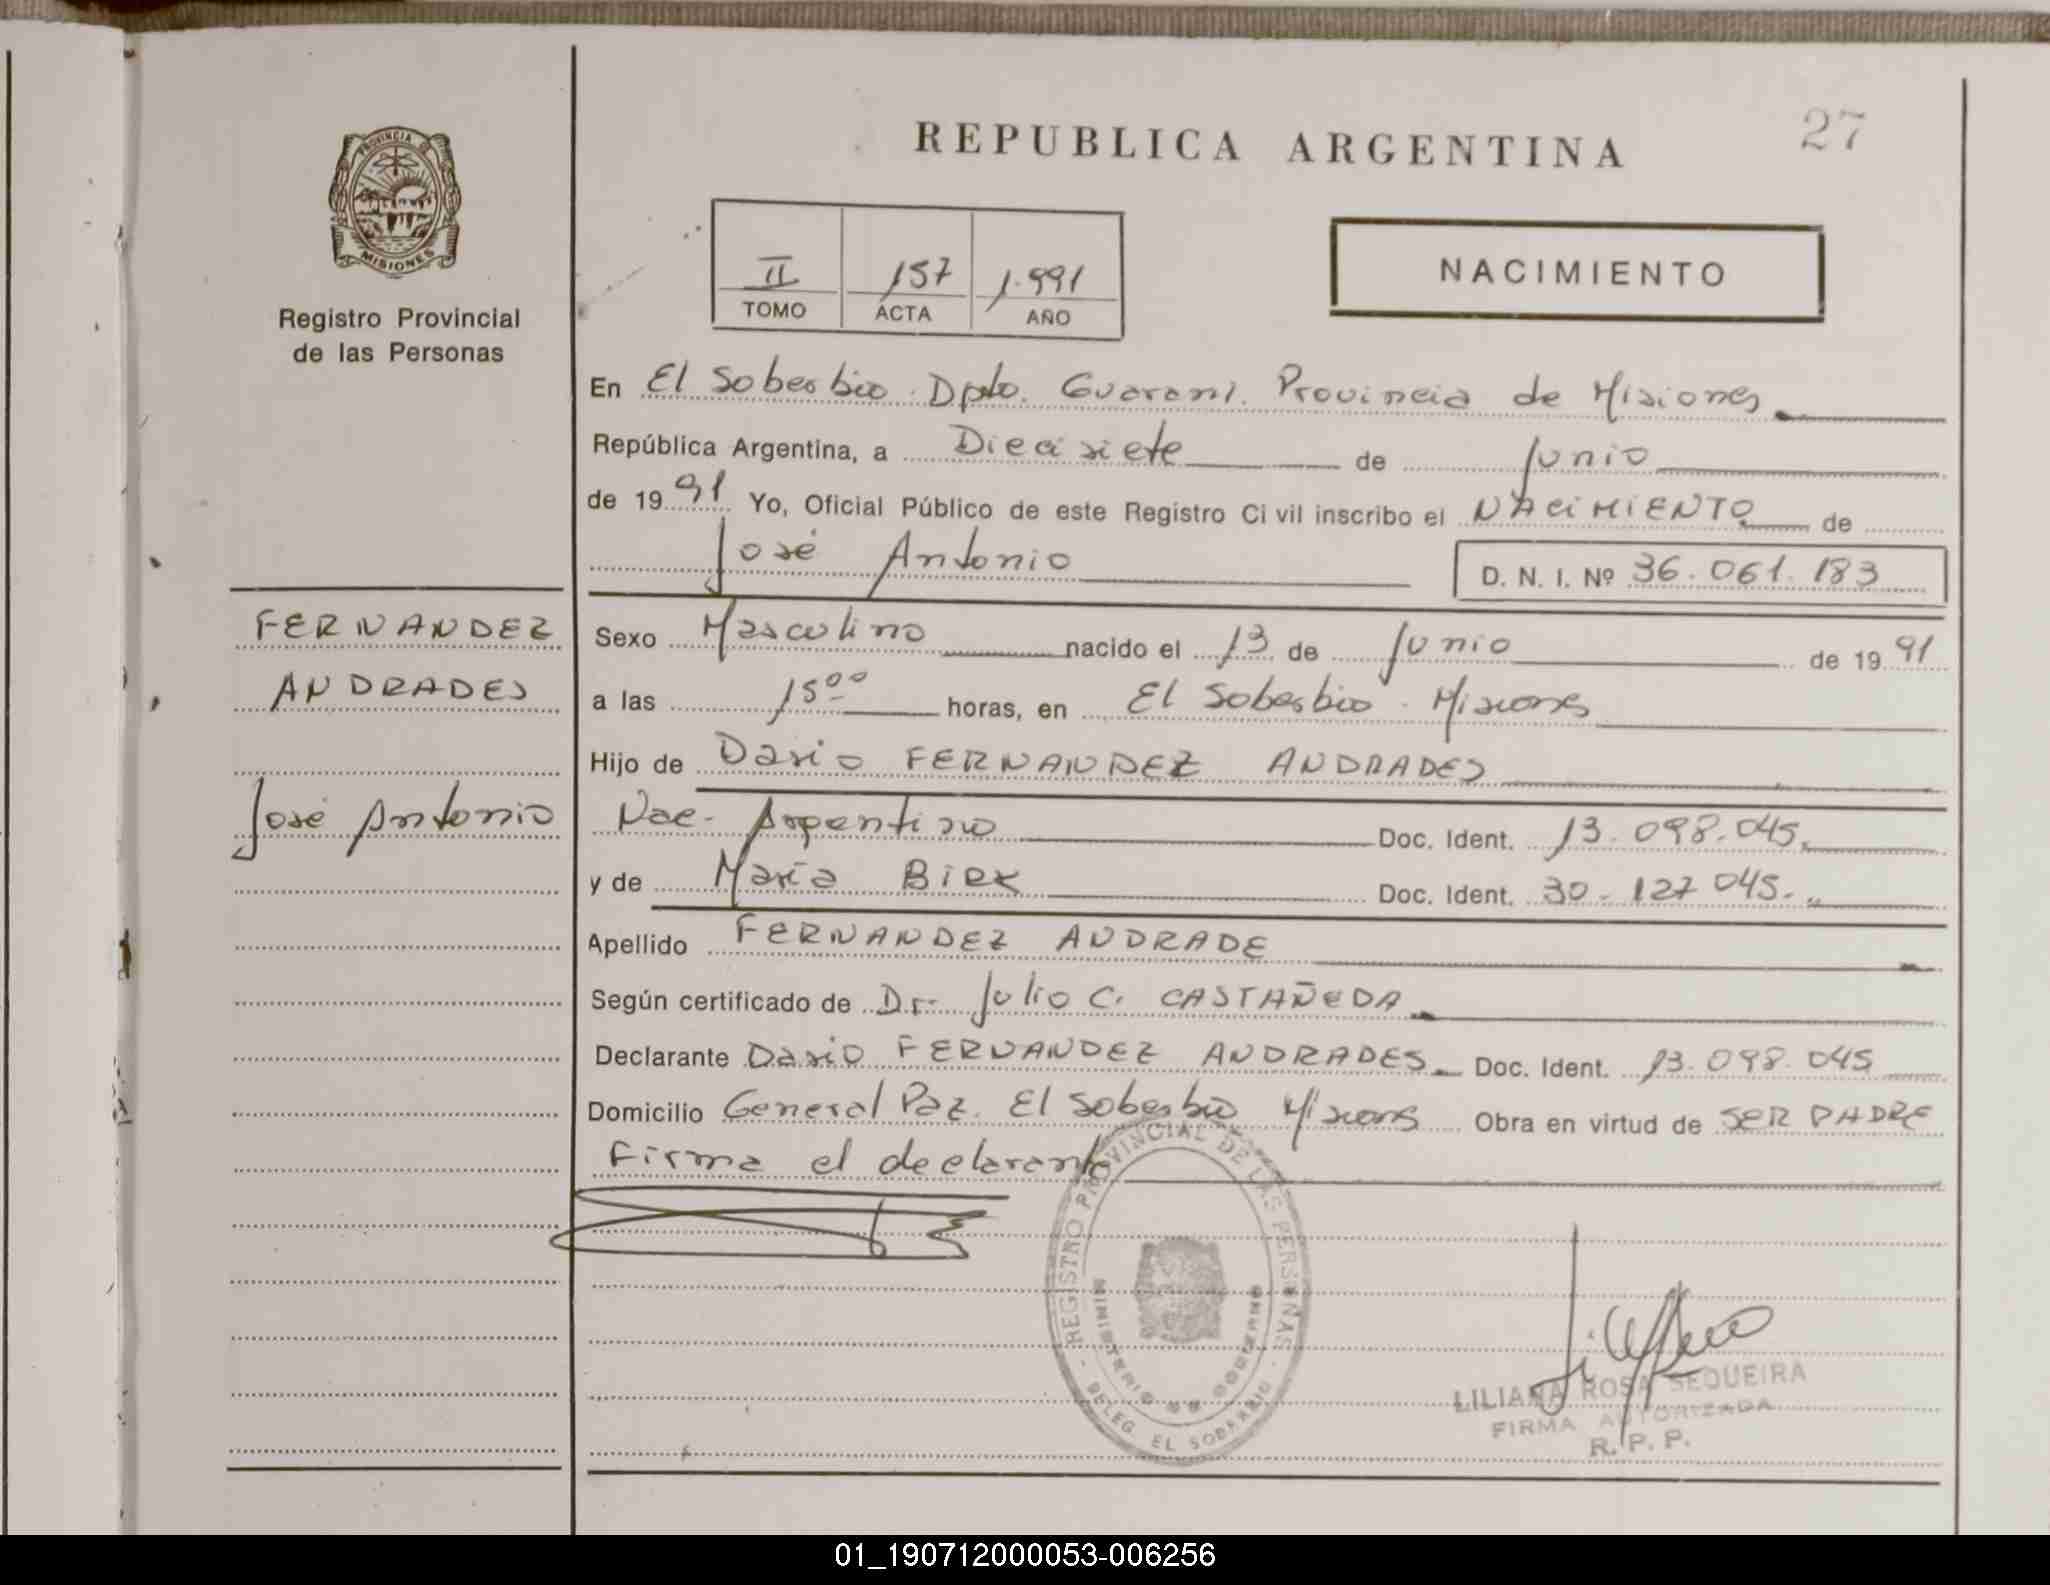 27
REPUBLICA ARGENTINA
PROVINCIA DE
MISIONES
Registro Provincial
de las Personas
II 157 1.991
TOMO ACTA AÑO
NACIMIENTO
En El Soberbio. Dpto. Guarani. Provincia de Misiones
República Argentina, a Diecisiete de Junio
de 1991 Yo, Oficial Público de este Registro Civil inscribo el NACIMIENTO de
José Antonio
D. N. I. Nº 36.061.183
FERNANDEZ
ANDRADES
José Antonio
Sexo Masculino nacido el 13 de Junio de 1991
a las 15⁰⁰ horas, en El Soberbio - Misiones
Hijo de Dario FERNANDEZ ANDRADES
Nac. Argentino Doc. Ident. 13.098.045.
y de María BIRK Doc. Ident. 30-127 045.
Apellido FERNANDEZ ANDRADE
Según certificado de Dr. Julio C. CASTAÑEDA
Declarante Dario FERNANDEZ ANDRADES Doc. Ident. 13.098.045
Domicilio General Paz. El Soberbio Misiones Obra en virtud de SER PADRE
Firma el declarante
REGISTRO PROVINCIAL DE LAS PERSONAS
MINISTERIO DE GOBIERNO
DELEG. EL SOBERBIO
LILIANA ROSA SEQUEIRA
FIRMA AUTORIZADA
R. P. P.
01_190712000053-006256